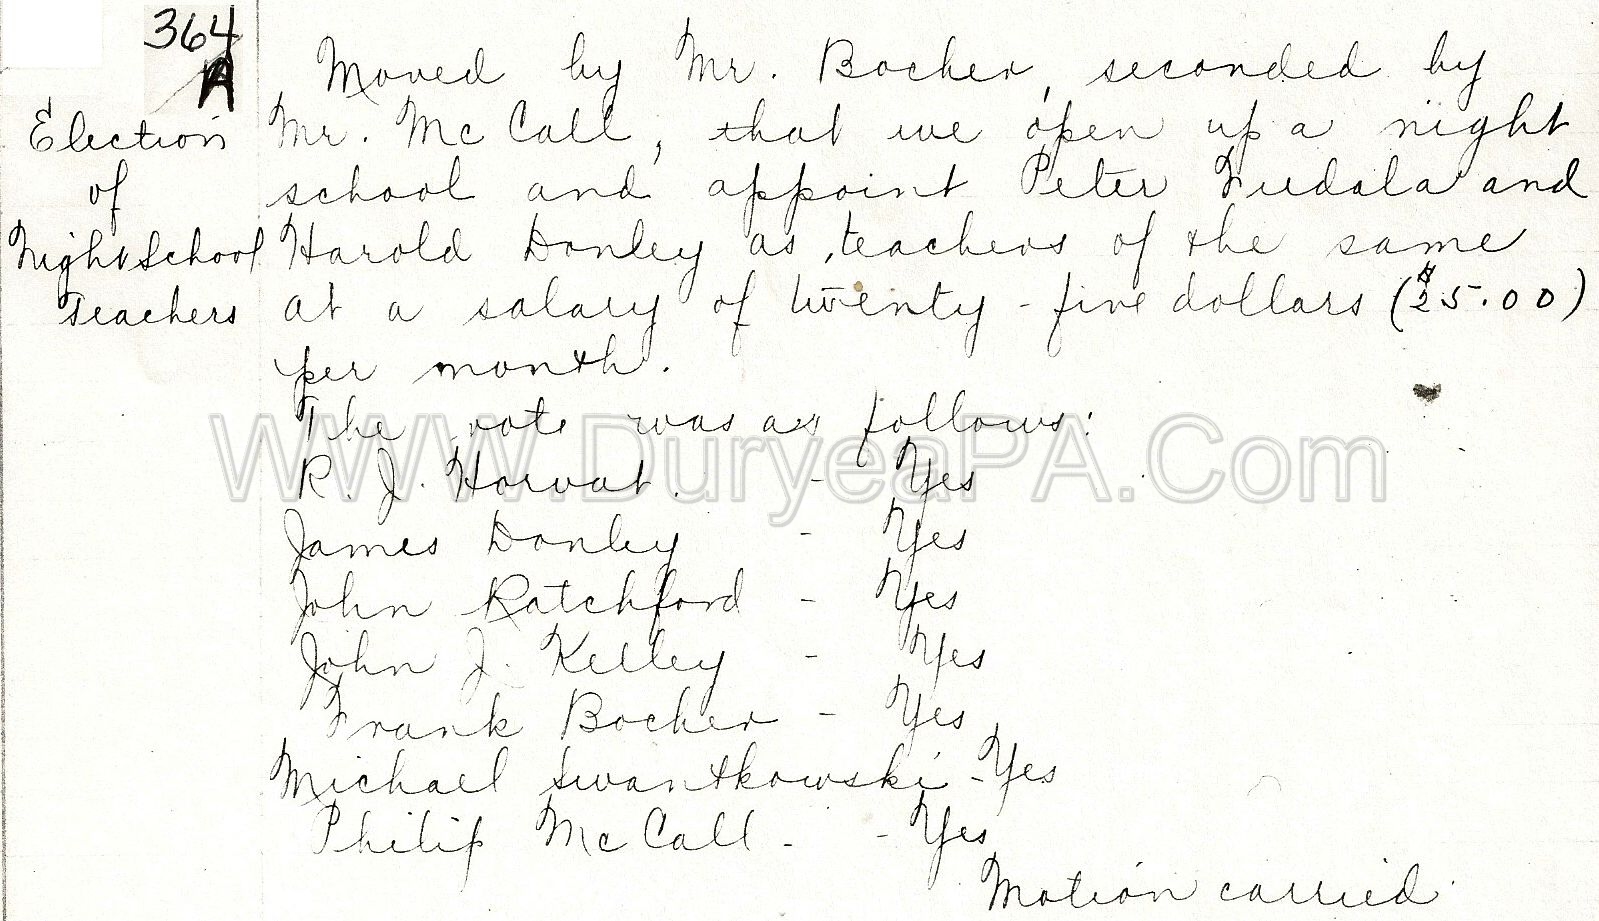 364
A
Election
of
Night School
Teachers
Moved by Mr. Bocher, seconded by
Mr. McCall, that we open up a night
school and appoint Peter Fudala and
Harold Donley as teachers of the same
at a salary of twenty-five dollars ($25.00)
per month.
The vote was as follows:
R. J. Horvat. - Yes
James Donley - Yes
John Ratchford - Yes
John J. Kelley - Yes
Frank Bocher - Yes
Michael Swantkowski - Yes
Philip McCall - - Yes
Motion carried.
WWW.DuryeaPA.Com